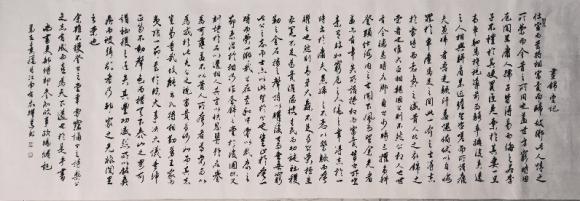 晝錦堂記
仕宦而至將相富貴而歸故鄉此人情之
所榮而今昔之所同也蓋士方窮時困
阨閭里庸人孺子皆得易而侮之若季
子不禮於其嫂買臣見棄於其妻一旦
高車駟馬旗旄導前而騎卒擁後夾道
之人相與駢肩累跡瞻望咨嗟而所謂庸
夫愚婦者奔走駭汗羞愧俯伏以自悔
罪於車塵馬足之間此一介之士得志
於當時而意氣之盛昔人比之衣錦之
榮者也惟大丞相魏國公則不然公相人也世
有令德為時名卿自公少時已擢高科
登顯仕海內之士聞下風而望餘光者
蓋亦有年矣所謂將相而富貴皆公所宜
素有非如窮阨之人僥倖得志於一
時出於庸夫愚婦之不意以驚駭而夸
耀之也然則高牙大纛不足為公榮桓圭
袞冕不足為公貴惟德被生民而功施社稷
勒之金石播之聲詩以耀後世而垂無窮
此公之志而士亦以此望於公也豈止夸一
時而榮一鄉哉公在至和中嘗以武康之
節來治於相乃作晝錦之堂於後圃既又
刻詩於石以遺相人其言以快恩讎矜名譽
為可薄蓋不以昔人所夸者為榮而以
為戒於此見公之視富貴為何如而其志
豈易量哉故能出入將相勤勞王家而
夷險一節至於臨大事決大議垂紳
正笏不動聲色而措天下於泰山之安可
謂社稷之臣矣其豐功盛烈所以銘彝
鼎而被弦歌者乃邦家之光非閭里
之榮也
余雖不獲登公之堂幸嘗竊誦公之詩樂公
之志有成而喜為天下道也於是乎書
尚書吏部侍郎參知政事歐陽修記